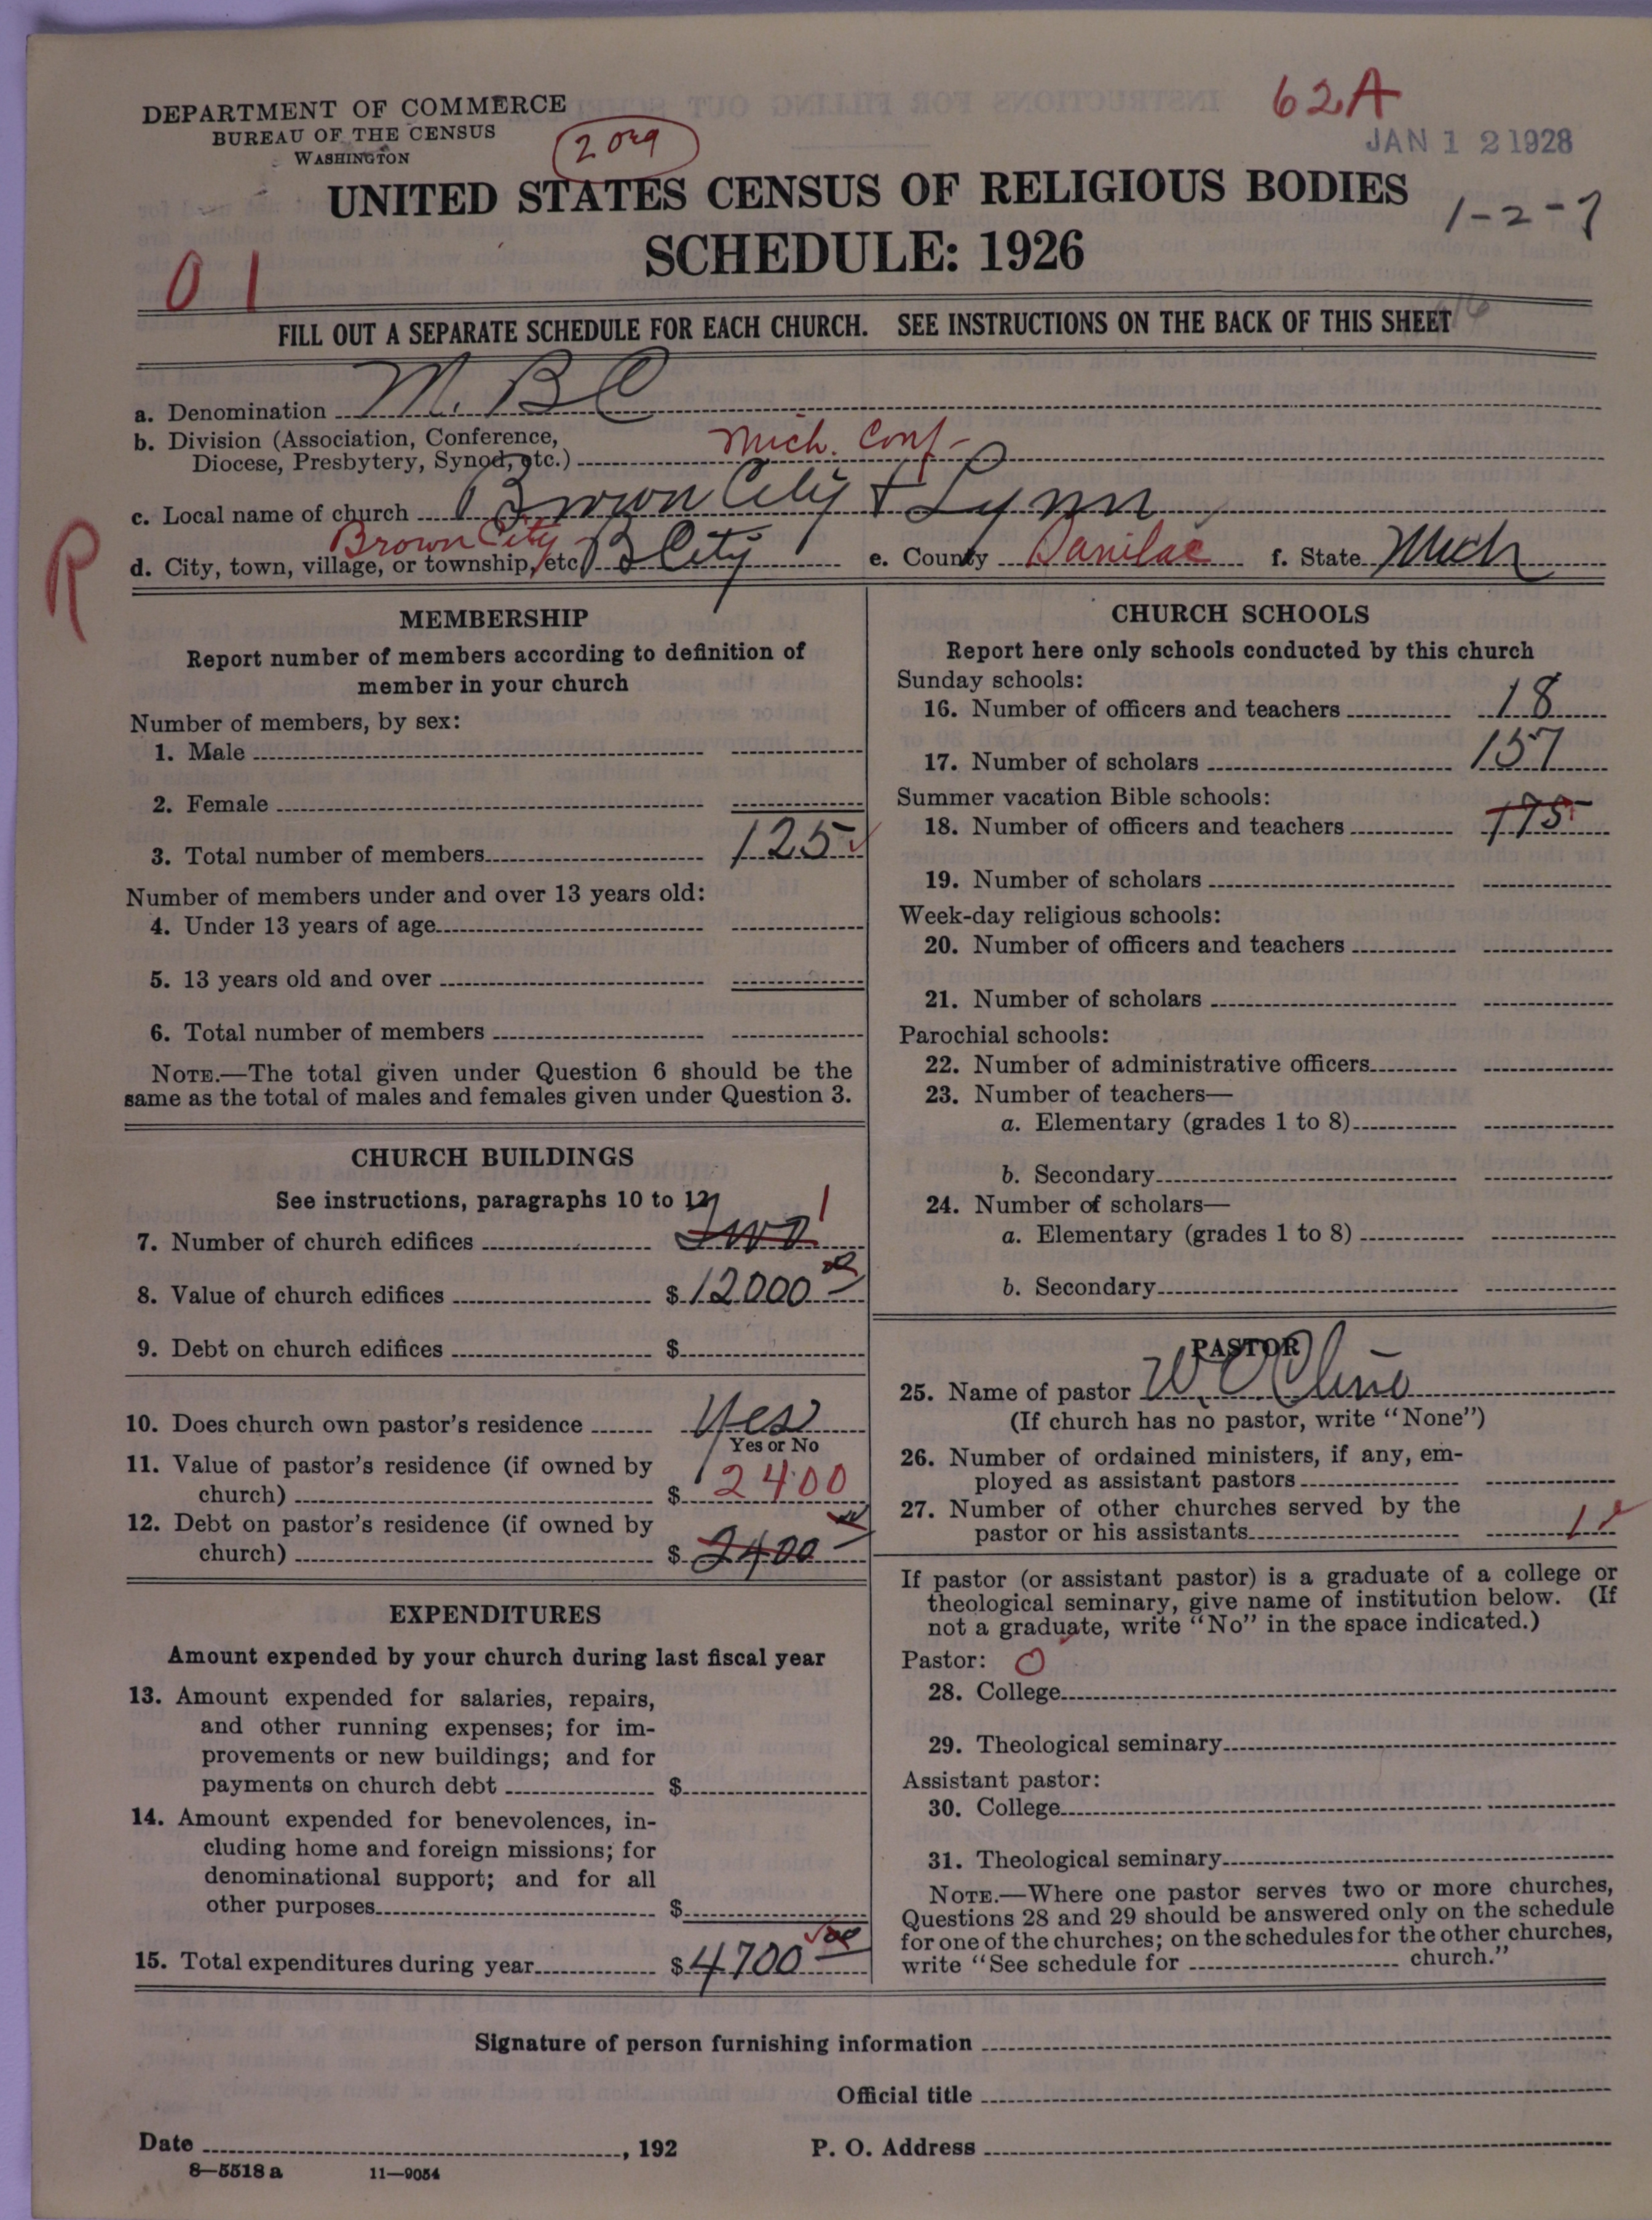 DEPARTMENT OF COMMERCE
BUREAU OF THE CENSUS
WASHINGTON
2 org
62A
JAN 12 1928
UNITED STATES CENSUS OF RELIGIOUS BODIES
1-2-7
SCHEDULE: 1926
01
FILL OUT A SEPARATE SCHEDULE FOR EACH CHURCH. SEE INSTRUCTIONS ON THE BACK OF THIS SHEET
a. Denomination M. B C
b. Division (Association, Conference,
Diocese, Presbytery, Synod, etc.) Mich. Conf-
c. Local name of church Brown City + Lynn
R
Brown City
d. City, town, village, or township, etc. B City e. County Sanilac f. State Mich
MEMBERSHIP
Report number of members according to definition of
member in your church
Number of members, by sex:
1. Male
2. Female
3. Total number of members 125
Number of members under and over 13 years old:
4. Under 13 years of age
5. 13 years old and over
6. Total number of members
NOTE.—The total given under Question 6 should be the
same as the total of males and females given under Question 3.
CHURCH BUILDINGS
See instructions, paragraphs 10 to 12
7. Number of church edifices Two 1
8. Value of church edifices $ 12000
9. Debt on church edifices $
10. Does church own pastor's residence Yes
Yes or No
11. Value of pastor's residence (if owned by
church) $ 2400
12. Debt on pastor's residence (if owned by
church) $ 2400
EXPENDITURES
Amount expended by your church during last fiscal year
13. Amount expended for salaries, repairs,
and other running expenses; for im-
provements or new buildings; and for
payments on church debt $
14. Amount expended for benevolences, in-
cluding home and foreign missions; for
denominational support; and for all
other purposes $
15. Total expenditures during year $ 4700
CHURCH SCHOOLS
Report here only schools conducted by this church
Sunday schools:
16. Number of officers and teachers 18
17. Number of scholars 157
Summer vacation Bible schools:
18. Number of officers and teachers 175
19. Number of scholars
Week-day religious schools:
20. Number of officers and teachers
21. Number of scholars
Parochial schools:
22. Number of administrative officers
23. Number of teachers—
a. Elementary (grades 1 to 8)
b. Secondary
24. Number of scholars—
a. Elementary (grades 1 to 8)
b. Secondary
PASTOR
25. Name of pastor W C Cline
(If church has no pastor, write "None")
26. Number of ordained ministers, if any, em-
ployed as assistant pastors
27. Number of other churches served by the
pastor or his assistants 1
If pastor (or assistant pastor) is a graduate of a college or
theological seminary, give name of institution below. (If
not a graduate, write "No" in the space indicated.)
Pastor: O
28. College
29. Theological seminary
Assistant pastor:
30. College
31. Theological seminary
NOTE.—Where one pastor serves two or more churches,
Questions 28 and 29 should be answered only on the schedule
for one of the churches; on the schedules for the other churches,
write "See schedule for church."
Signature of person furnishing information
Official title
Date , 192 P. O. Address
8—5518 a 11—9054